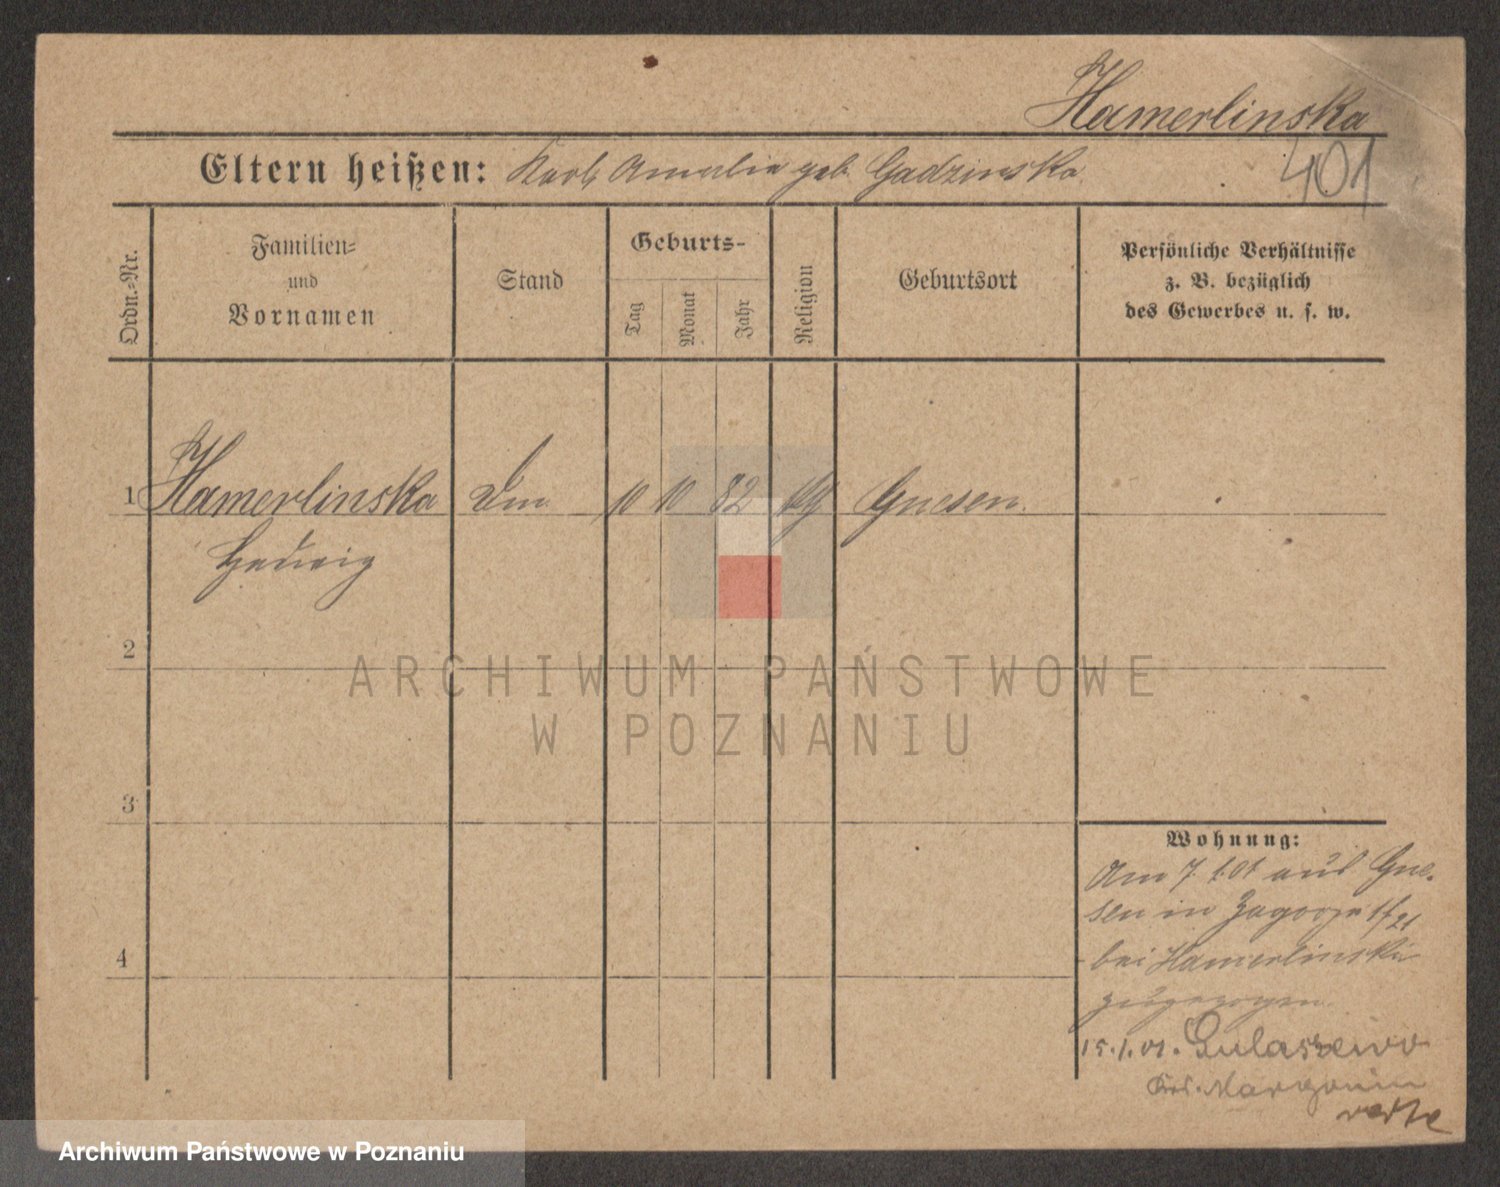 Hamerlinska
Eltern heißen: Karl, Amalie geb. Gadzinska
401
Ordn.-Nr.
Familien-
und
Vornamen
Stand
Geburts-
Tag
Monat
Jahr
Religion
Geburtsort
Persönliche Verhältnisse
z. B. bezüglich
des Gewerbes u. s. w.
1 Hamerlinska 10 10 82 Gnesen
Hedwig
2
ARCHIWUM PAŃSTWOWE
W POZNANIU
3
4
Wohnung:
Am 7. 1. 01 aus Gne-
sen in Zagorze 1/21
bei Hamerlinski
zugezogen.
15.1.01.
Margonin
Archiwum Państwowe w Poznaniu